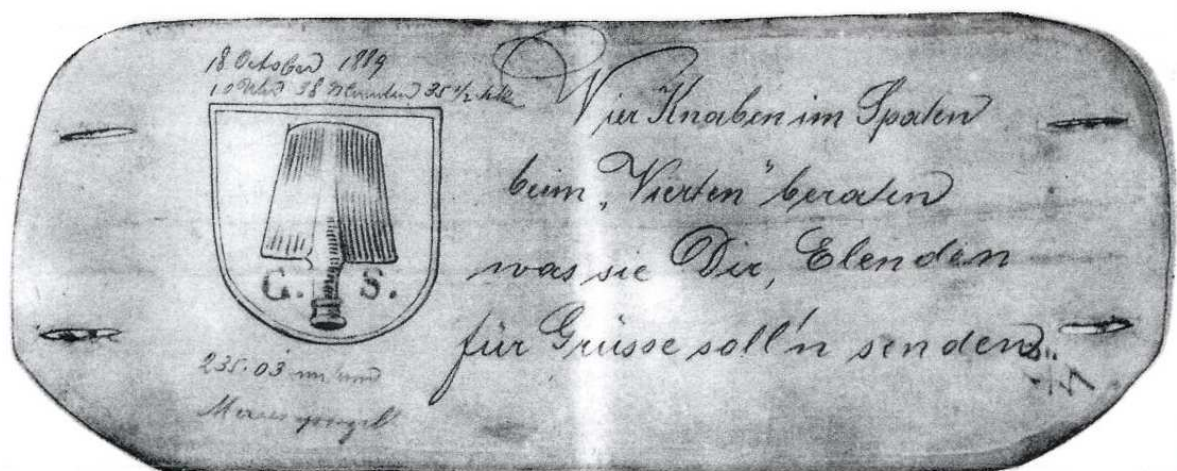 18 October 1889
10 Uhr 38 Minuten 35 1/2 Sek
G. S.
235.03 m und
Vier Knaben im Spaten
beim „Vierten“ beraten
was sie Dir, Elenden
für Grüsse soll'n senden